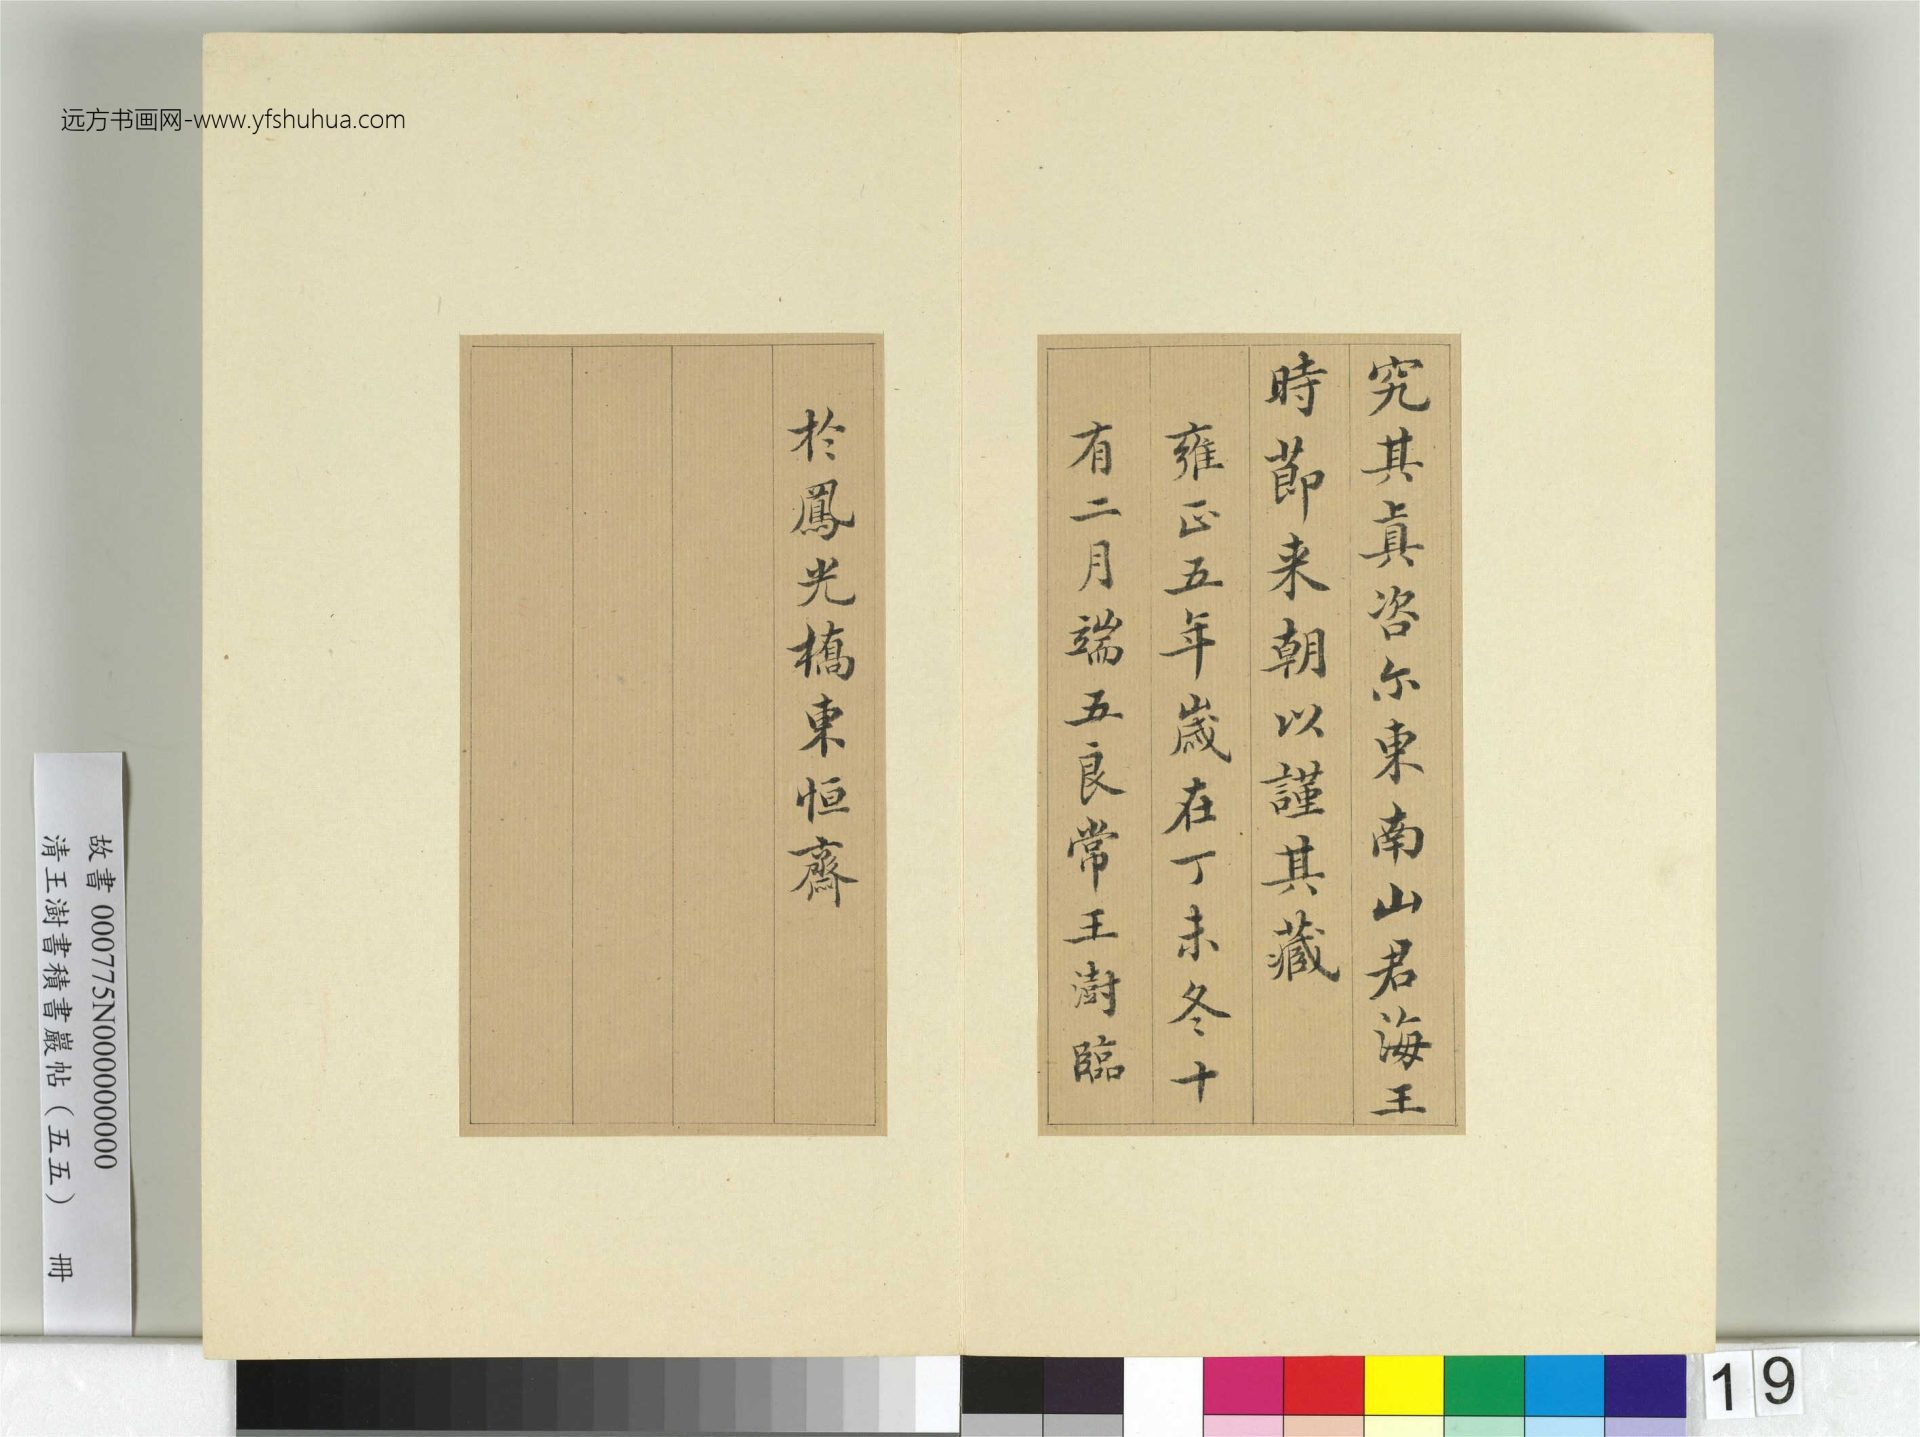 远方书画网-www.yfshuhua.com
究其真咨尔東南山君海王
時節来朝以謹其藏
雍正五年歲在丁未冬十
有二月端五良常王澍臨
於鳳光橋東恒齋
故書 000775N000000000
清王澍書積書巖帖（五五） 冊
19